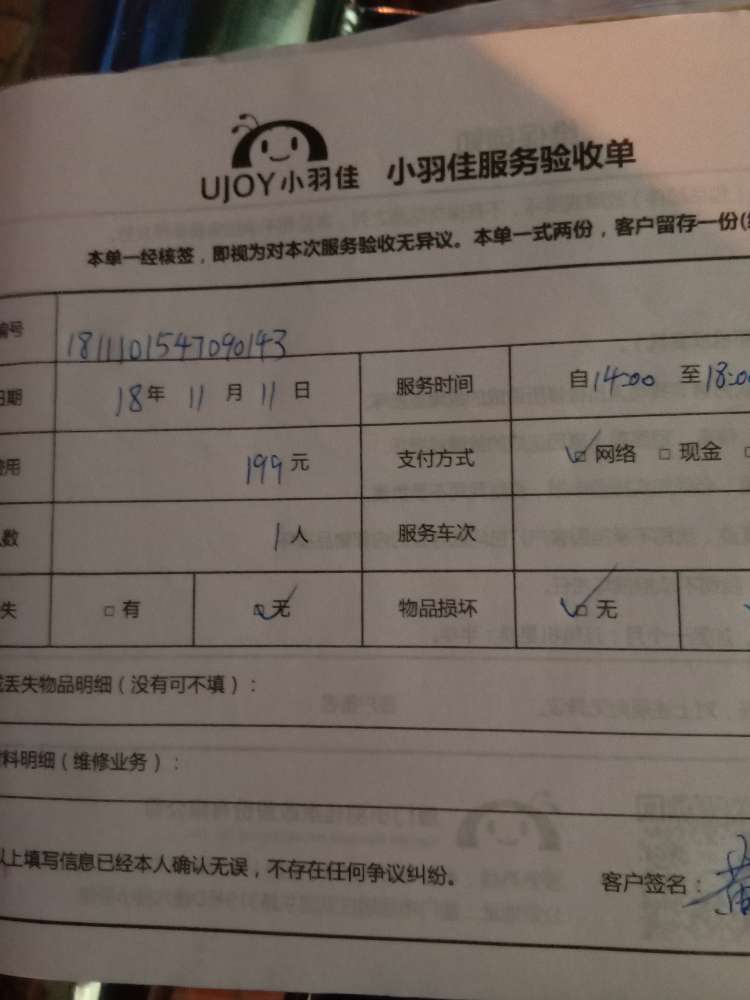 UJOY小羽佳 小羽佳服务验收单
本单一经核签，即视为对本次服务验收无异议。本单一式两份，客户留存一份(
编号 1811101547090143
日期 18年 11月 11日 服务时间 自14:00 至18:00
费用 199元 支付方式 ☑网络 □现金
人数 1人 服务车次
失 □有 ☑无 物品损坏 ☑无
丢失物品明细（没有可不填）：
料明细（维修业务）：
以上填写信息已经本人确认无误，不存在任何争议纠纷。
客户签名：黄